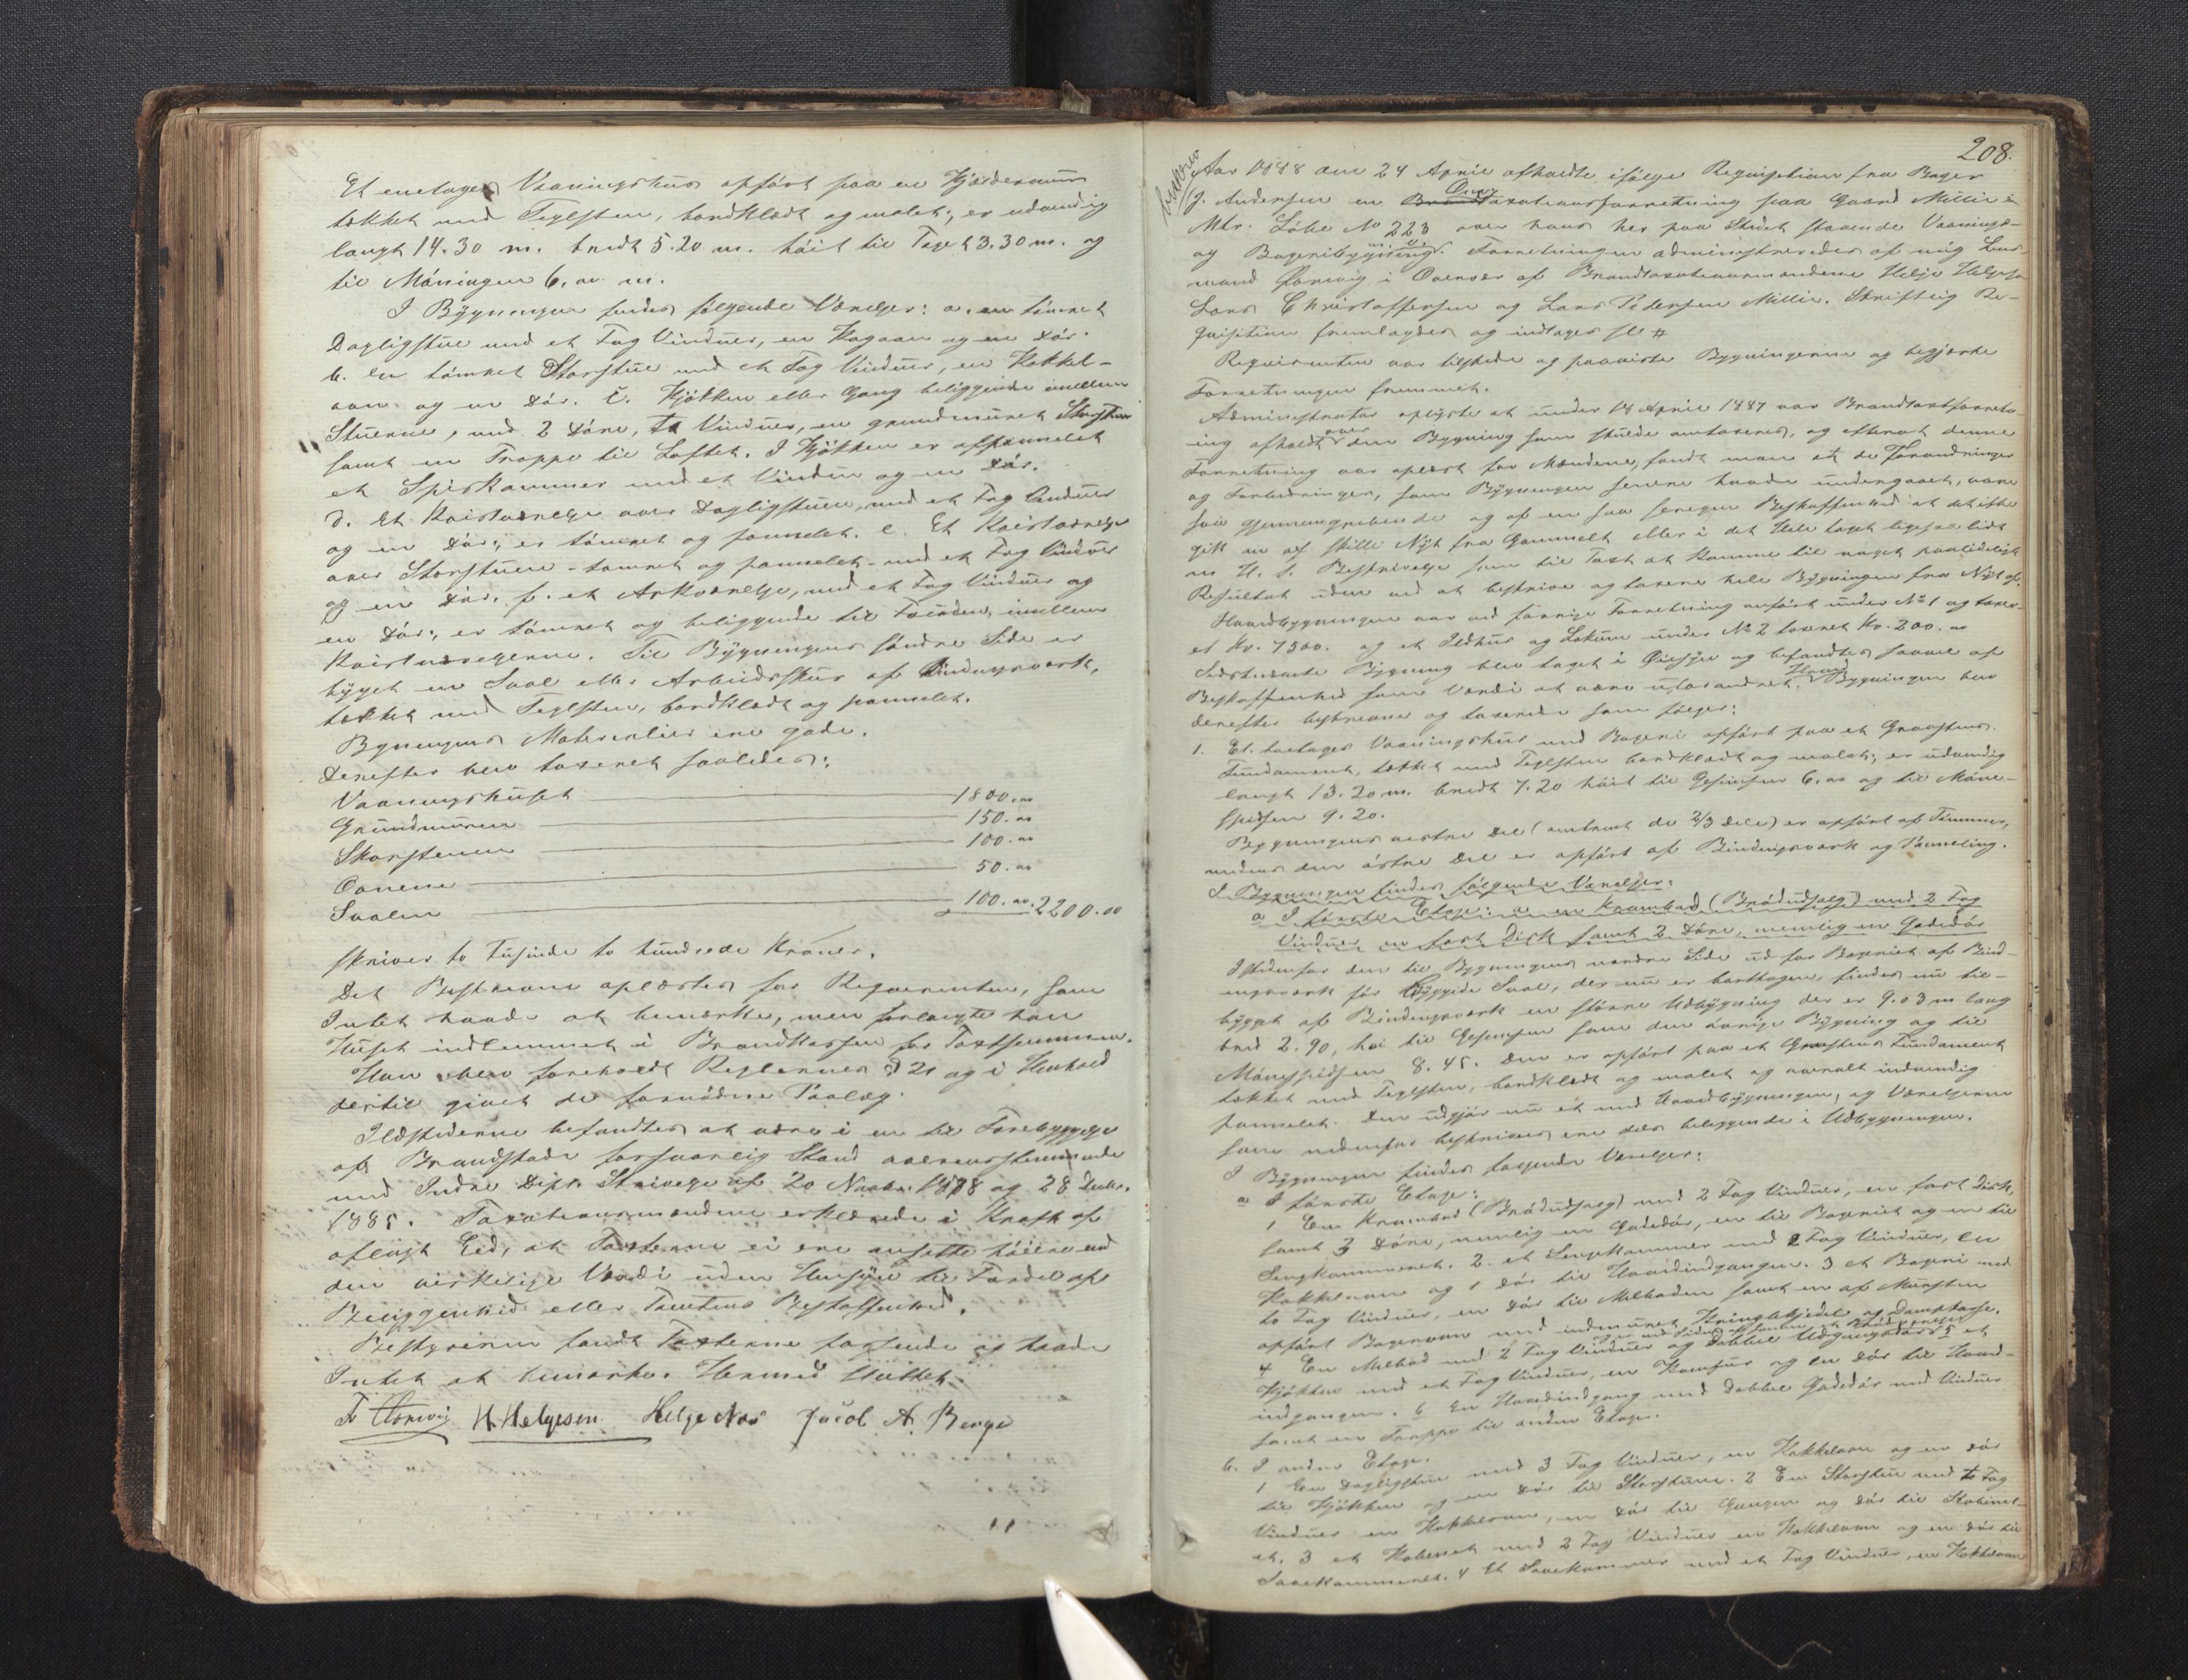 Et enetages Vaaningshus opført paa en Kjeldermuur
tækket med Teglsten, bordklædt og malet; er udvendig
langt 14.30 m. bredt 5.20 m. høit til Taget 3.30 m. og
til Møningen 6,00 m.
I Bygningen findes følgende Værelser: a. en tømret
Dagligstue med et Fag Vinduer, en Kogeovn og en Dør.
b. En tømret Storstue med et Fag Vinduer, en Kakkel-
ovn og en Dør. c. Kjøkken eller Gang beliggende imellem
Stuerne, med 2 Døre, to Vinduer, en grundmuret Skorsten
samt en Trappe til Loftet. I Kjøkken er afpanelet
et Spiskammer med et Vindue og en Dør.
d. Et Kvistværelse over Dagligstuen, med et Fag Vinduer
og en Dør; er tømret og panelet. e. Et Kvistværelse
over Storstuen - tømret og panelet - med et Fag Vinduer
og en Dør. f. et Arkværelse, med et Fag Vinduer og
en Dør; er tømret og beliggende til Facaden, imellem
Kvistværelserne. Til Bygningens søndre Side er
bygget en Sval eller Arbeidsskur af Bindingsværk,
tækket med Teglsten, bordklædt og panelet.
Bygningens Materialier ere gode.
Derefter blev taxeret saaledes:
Vaaningshuset 1800.00
Grundmuren 150.00
Skorstenen 100.00
Ovnene 50.00
Svalen 100.00 2200.00
skriver to Tusinde to hundrede Kroner.
Det Beskrevne oplæstes for Requirenten, som
Intet havde at bemærke, men forlangte han
Huset indlemmet i Brandkassen for Taxtsummen.
Han blev foreholdt Reglernes § 21 og i Henhold
dertil givet de fornødne Paalæg.
Ildstederne befandtes at være i en til Forebyggelse
af Brandskade forsvarlig Stand overensstemmende
med Indre Dept. Skrivelse af 20 Novbr. 1878 og 28 Decbr.
1885. Taxationsmændene erklærede i Kraft af
aflagt Eed, at Taxterne ei ere ansatte høiere end
den virkelige Værdi uden Hensyn til Fordel af
Beliggenhed eller Tomtens Beskaffenhed.
Bestyreren fandt Taxterne passende og havde
Intet at bemærke. Hermed sluttet.
H. Helgesen Helge Næs Jacob A. Berge
208.
Aar 1888 den 24 April afholdte ifølge Requisition fra Bager
J. Andersen en Omtaxationsforretning paa Gaard Millie i
Mtr. Løbe No 223 over hans her paa Stedet staaende Vaanings-
og Bageribygning m. v. Forretningen administreredes af mig Lens-
mand i Qvernes af Brandtaxationsmændene Helje Helgesen
Lars Christoffersen og Lars Pedersen Millie. Skriftlig Re-
quisition fremlagdes og indtages sle #
Requirenten var tilstede og paaviste Bygningerne og begjærte
Forretningen fremmet.
Administrator oplyste at under 18 April 1887 var Brandtaxtforretn-
ing afholdt over den Bygning som skulde omtaxeres, og efterat denne
Forretning var oplæst for Mændene, fandt man at de Forandringer
og Forbedringer, som Bygningen senere havde undergaaet, vare
saa gjennemgribende og af en saa særegen Beskaffenhed at det ikke
gik an at skille Nyt fra Gammelt eller i det Hele taget ligesaalidt
m H. t. Beskrivelse som til Taxt at komme til noget paalideligt
Resultat uden ved at beskrive og taxere hele Bygningen fra Nyt af.
Hovedbygningen var ved forrige Forretning anført under No 1 og taxer-
et Kr. 7500. og et Ildhus og Lokum under No 2 taxeret Kr. 200.00
Sidstnævnte Bygning blev taget i Øiesyn og befandtes saavel af
Beskaffenhed som Værdi at være uforandret. Hovedbygningen blev
derefter beskreven og taxeret som følger:
1. Et toetages Vaaningshus med Bageri opført paa et Graastens-
Fundament, tækket med Teglsten bordklædt og malet; er udvendig
langt 13.20 m. bredt 7.20 høit til Gesimsen 6.00 og til Møne-
spidsen 9.20.
Bygningens vestre Del (omtrent de 2/3 Dele) er opført af Tømmer,
medens den østre Del er opført af Bindingsværk og Paneling.
I Bygningen findes følgende Værelser:
a I første Etage: a en Krambod (Brødudsalg) med 2 Fag
Vinduer en fast Disk samt 2 Døre, nemlig en Gadedør
Istedenfor den til Bygningens nordre Side ud for Bageriet af Bind-
ingsværk før byggede Sval, der nu er borttagen, findes nu til-
bygget af Bindingsværk en større Udbygning der er 9.03 m lang
bred 2.90, høi til Gesimsen som den øvrige Bygning og til
Mønespidsen 8.45. Den er opført paa et Graastens Fundament
tækket med Teglsten, bordklædt og malet og overalt indvendig
panelet. Den udgjør nu ét med Hovedbygningen, og Værelserne
som nedenfor beskrives ere dels beliggende i Udbygningen.
I Bygningen findes følgende Værelser:
a I første Etage:
1 En Krambod (Brødudsalg) med 2 Fag Vinduer, en fast Disk,
samt 3 Døre, nemlig en Gadedør, en til Bageriet og en til
Sengkammeret. 2. et Sengekammer med 2 Fag Vinduer, en
Kakkelovn og 1 Dør til Hovedindgangen. 3 et Bageri med
to Fag Vinduer, en Dør til Melboden samt en af Mursten
opført Bagerovn med indmuret Kringlekjedel og Dampkasse.
4 En Melbod med 2 Fag Vinduer og dobbel Udgangsdør 5 et
Kjøkken med et Fag Vinduer, en Komfur og en Dør til Hoved-
indgangen. 6 En Hovedindgang med dobbel Gadedør med Vinduer
samt en Trappe til anden Etage.
b. I anden Etage.
1 En Dagligstue med 3 Fag Vinduer, en Kakkelovn og en Dør
til Kjøkken og en Dør til Storstuen. 2 En Storstue med to Fag
Vinduer en Kakkelovn, en Dør til Gangen og Dør til Kabinet-
et. 3 et Kabinet med 2 Fag Vinduer en Kakkelovn og en Dør til
Sovekammeret. 4 Et Sovekammer med et Fag Vinduer, en Kakkelovn